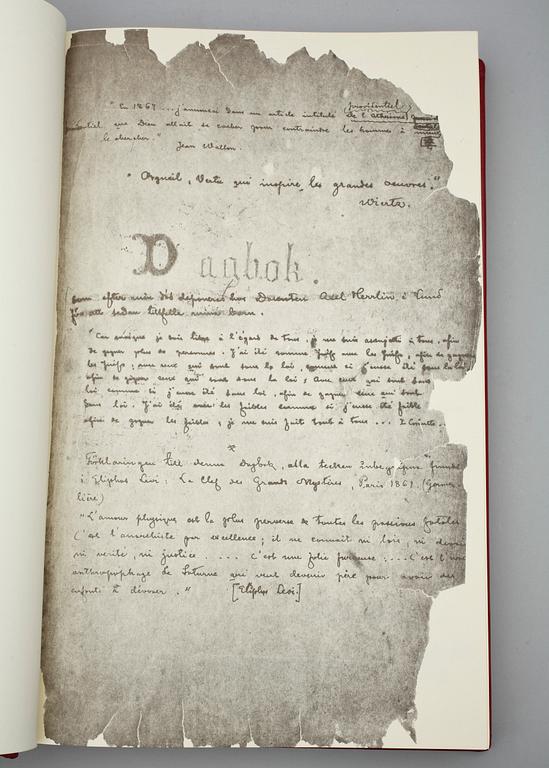 "En 1867 ... j'annonçai dans un article intitulé de l'Athéisme providentiel
que Dieu allait se cacher pour contraindre les hommes à
le chercher."
Jean Wallon.
"Orgueil, Vertu qui inspire les grandes oeuvres."
Wiertz.
Dagbok.
som efter min död deponeras hos Docenten Axel Herrlin i Lund
för att sedan tillfalla mina barn.
"Car quoique je sois libre à l'égard de tous, je me suis assujetti à tous, afin
de gagner plus de personnes. J'ai été comme Juif avec les Juifs, afin de gagner
les Juifs; avec ceux qui sont sous la loi, comme si j'eusse été sous la loi,
afin de gagner ceux qui sont sous la loi; avec ceux qui sont sans
loi comme si j'eusse été sans loi, afin de gagner ceux qui sont
sans loi. J'ai été avec les faibles comme si j'eusse été faible
afin de gagner les faibles; je me suis fait tout à tous ... I Corinth..
*
Förklaringar till denna Dagbok, alla tecken inbegripna, finnas
i Eliphas Levi: La Clef des Grands Mystères, Paris 1861. (Germer
lière)
"L'amour physique est la plus perverse de toutes les passions fatales
C'est l'anarchiste par excellence; il ne connait ni lois, ni devoirs
ni vérité, ni justice. ... C'est une folie furieuse .... C'est
anthropophage de Saturne qui veut devenir père pour avoir des
enfants à dévorer." [Eliphas Levi.]